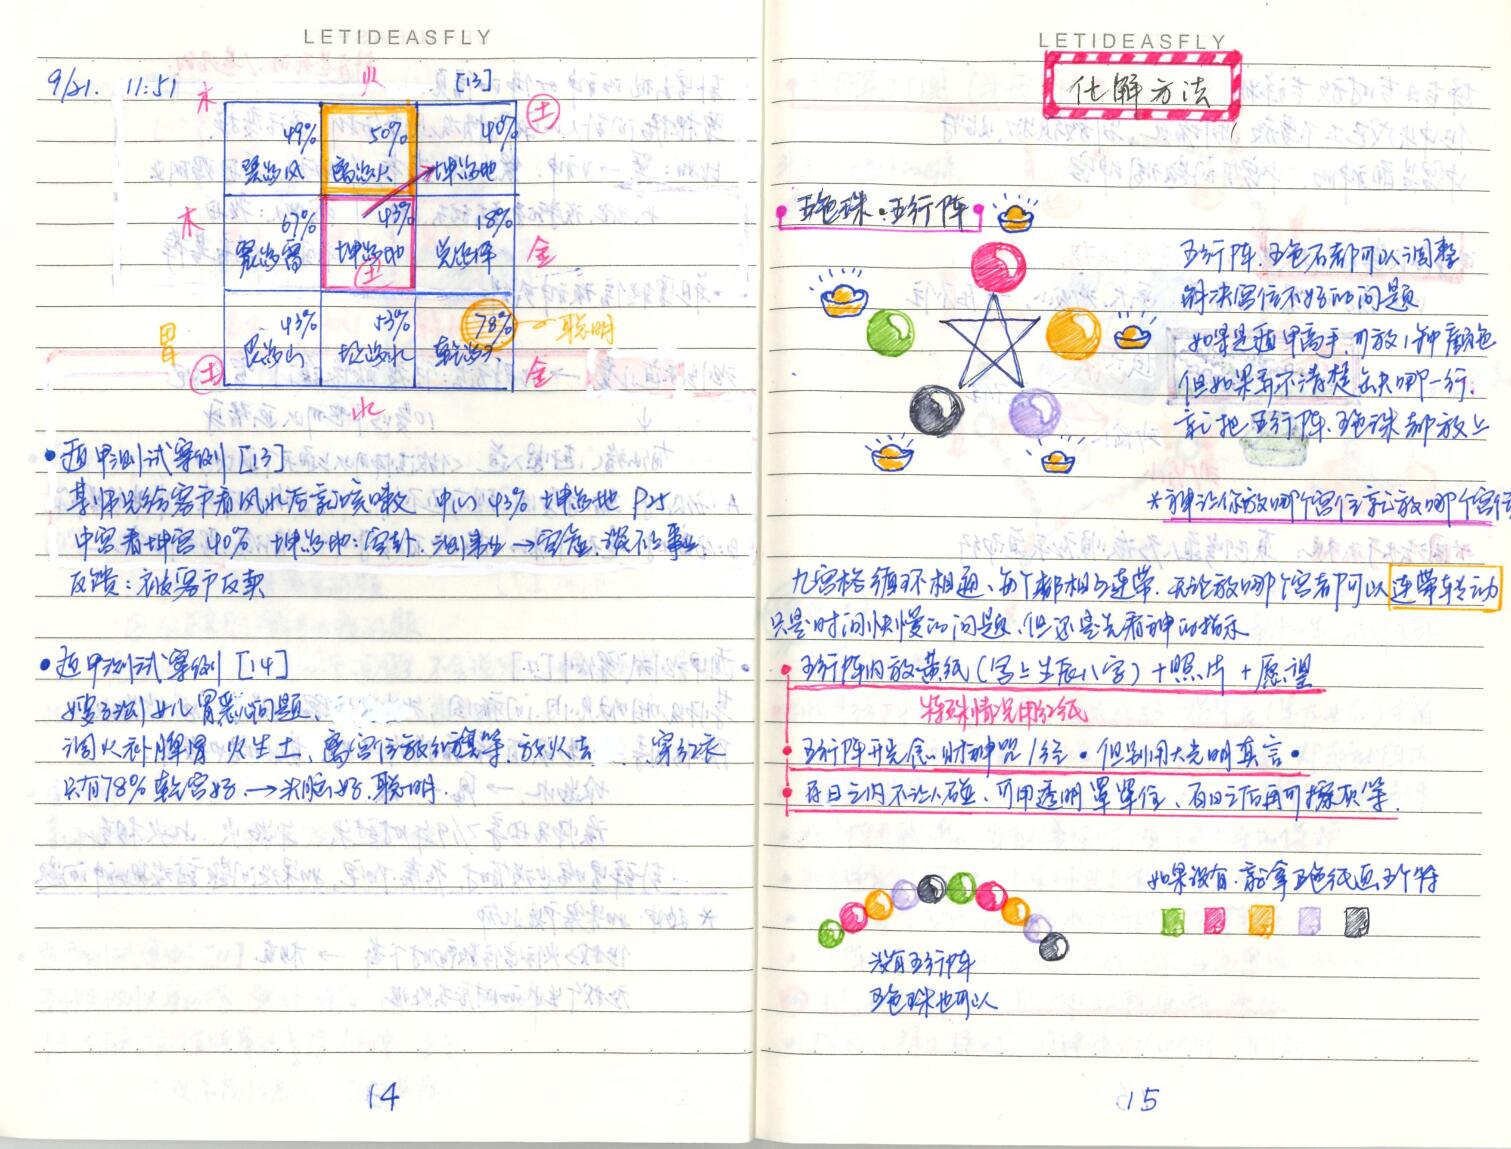 LETIDEASFLY
9/21. 11:51
木 火 [13] 土
49% 50% 40%
巽为风 离为火 坤为地
木 67% 43% 18% 金
震为雷 坤为地 兑为泽
土
胃 43% 53% 78% 聪明
艮为山 坎为水 乾为天
土 水 金
• 遁甲测试案例 [13]
某师兄给客户看风水后就咳嗽 中心 43% 坤为地 P25
中宫看坤宫 40% 坤为地：空卦. 测事业 → 空虚. 没什么事业
反馈：衣被客户反卖
• 遁甲测试案例 [14]
测女儿胃恶心问题.
调火补脾胃 火生土、离宫位放红旗等. 放火去 穿红衣
只有78% 乾宫好 → 头脑好. 聪明.
14
LETIDEASFLY
化解方法
五色珠·五行阵
五行阵. 五色石都可以调整
解决宫位不好的问题
如果是遁甲高手. 可放1种颜色
但如果弄不清楚缺哪一行.
就把五行阵. 五色珠都放上
*神让你放哪个宫位就放哪个宫位
九宫格循环相通、每个都相互连带. 无论放哪个宫都可以连带转动
只是时间快慢的问题、但还是先看神的指示
• 五行阵内放黄纸（写上生辰八字）+ 照片 + 愿望
特殊情况用红纸
• 五行阵开光念财神咒1分 • 但别用大光明真言 •
• 百日之内不让人碰、可用透明罩罩住、百日之后再可擦灰等.
如果没有. 就拿五色纸画五个符
没有五行阵
五色珠也可以
15